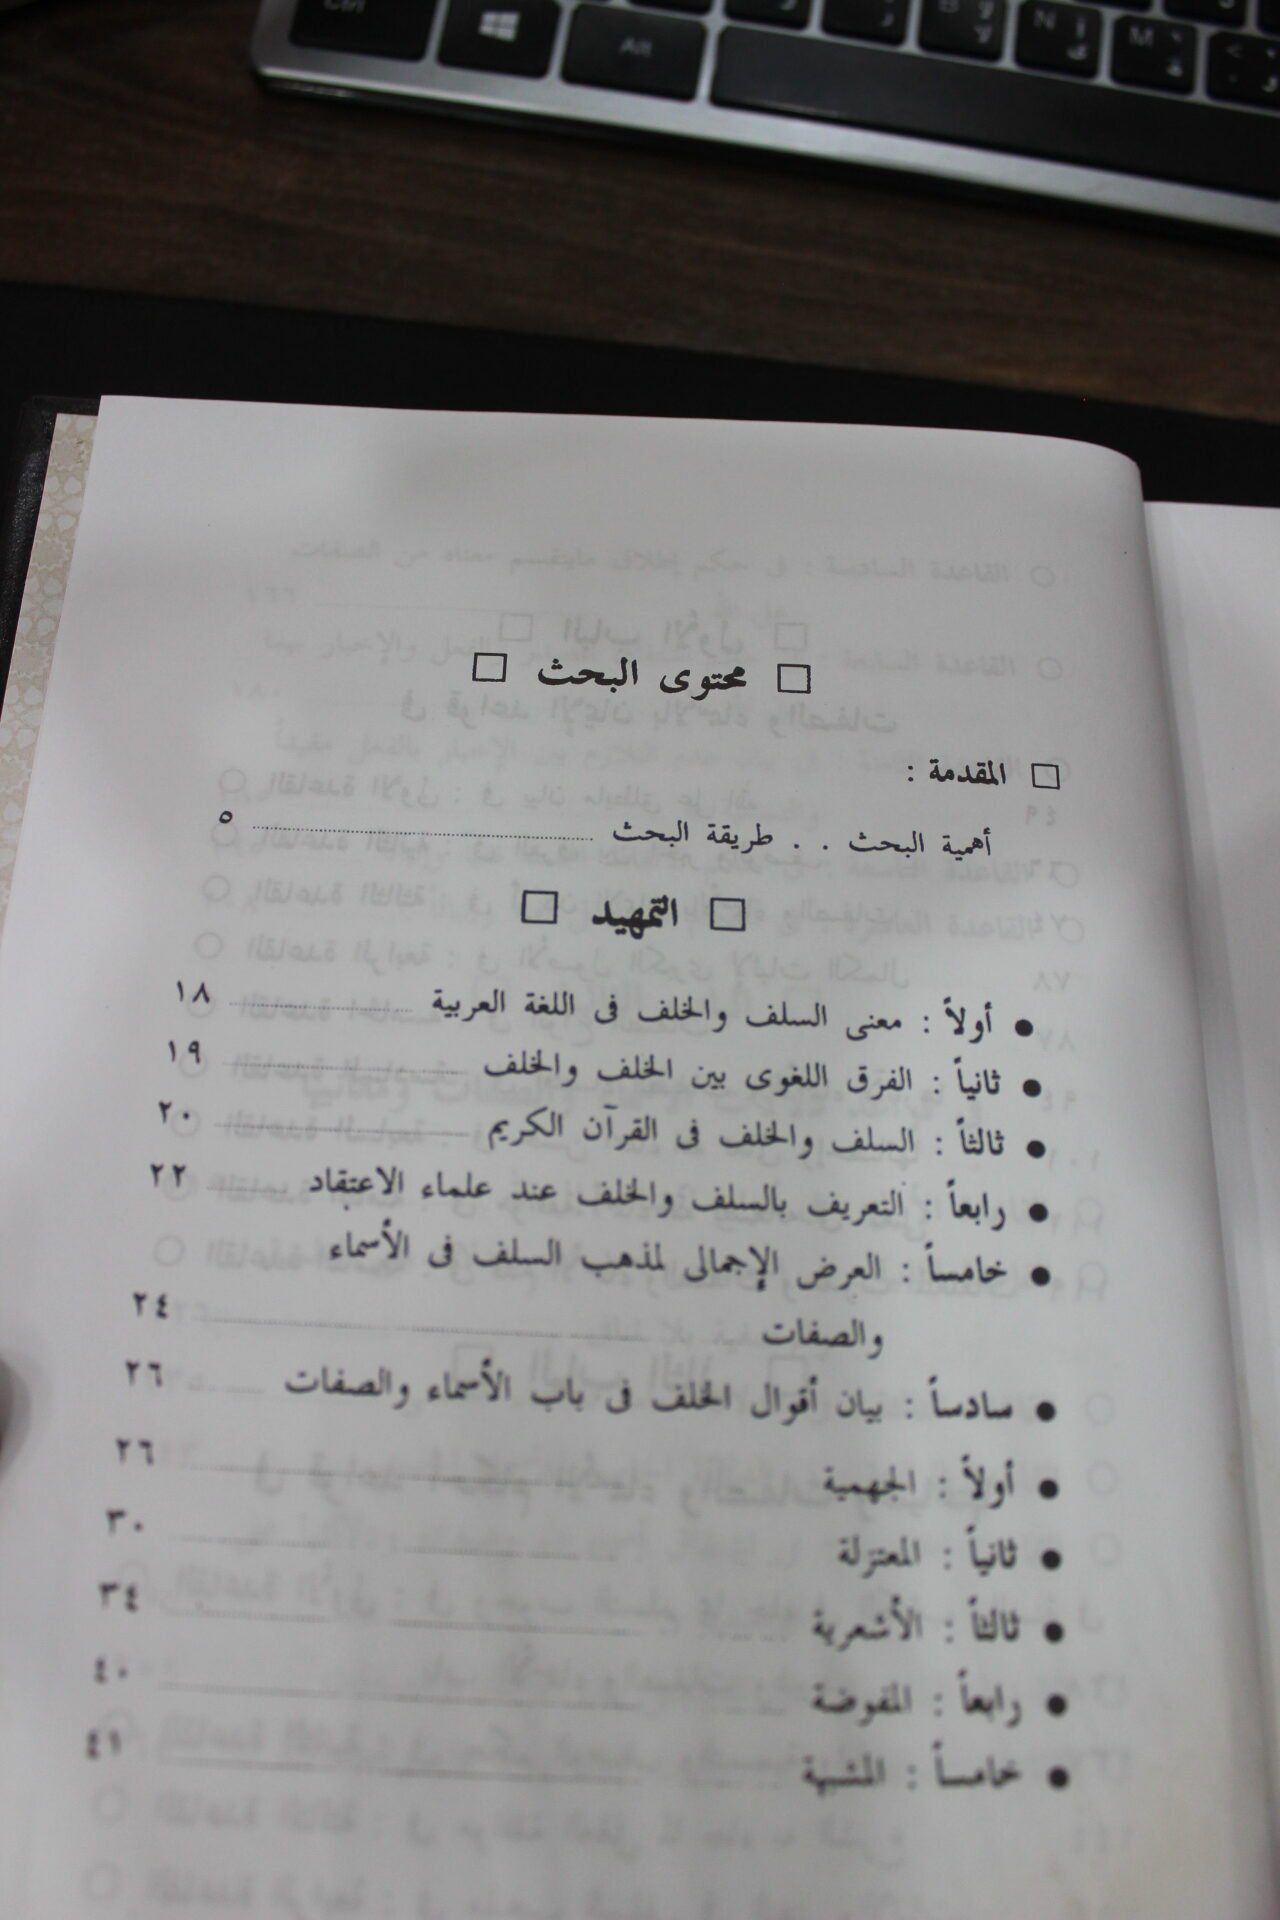 Ctrl
Alt
B
N
M
□ محتوى البحث □
□ المقدمة :
أهمية البحث . . طريقة البحث ٥
□ التمهيد □
● أولاً : معنى السلف والخلف فى اللغة العربية ١٨
● ثانياً : الفرق اللغوى بين الخلف والخلف ١٩
● ثالثاً : السلف والخلف فى القرآن الكريم ٢٠
● رابعاً : التعريف بالسلف والخلف عند علماء الاعتقاد ٢٢
● خامساً : العرض الإجمالى لمذهب السلف فى الأسماء
والصفات ٢٤
● سادساً : بيان أقوال الخلف فى باب الأسماء والصفات ٢٦
● أولاً : الجهمية ٢٦
● ثانياً : المعتزلة ٣٠
● ثالثاً : الأشعرية ٣٤
● رابعاً : المفوضة ٤٠
● خامساً : المشبهة ٤١